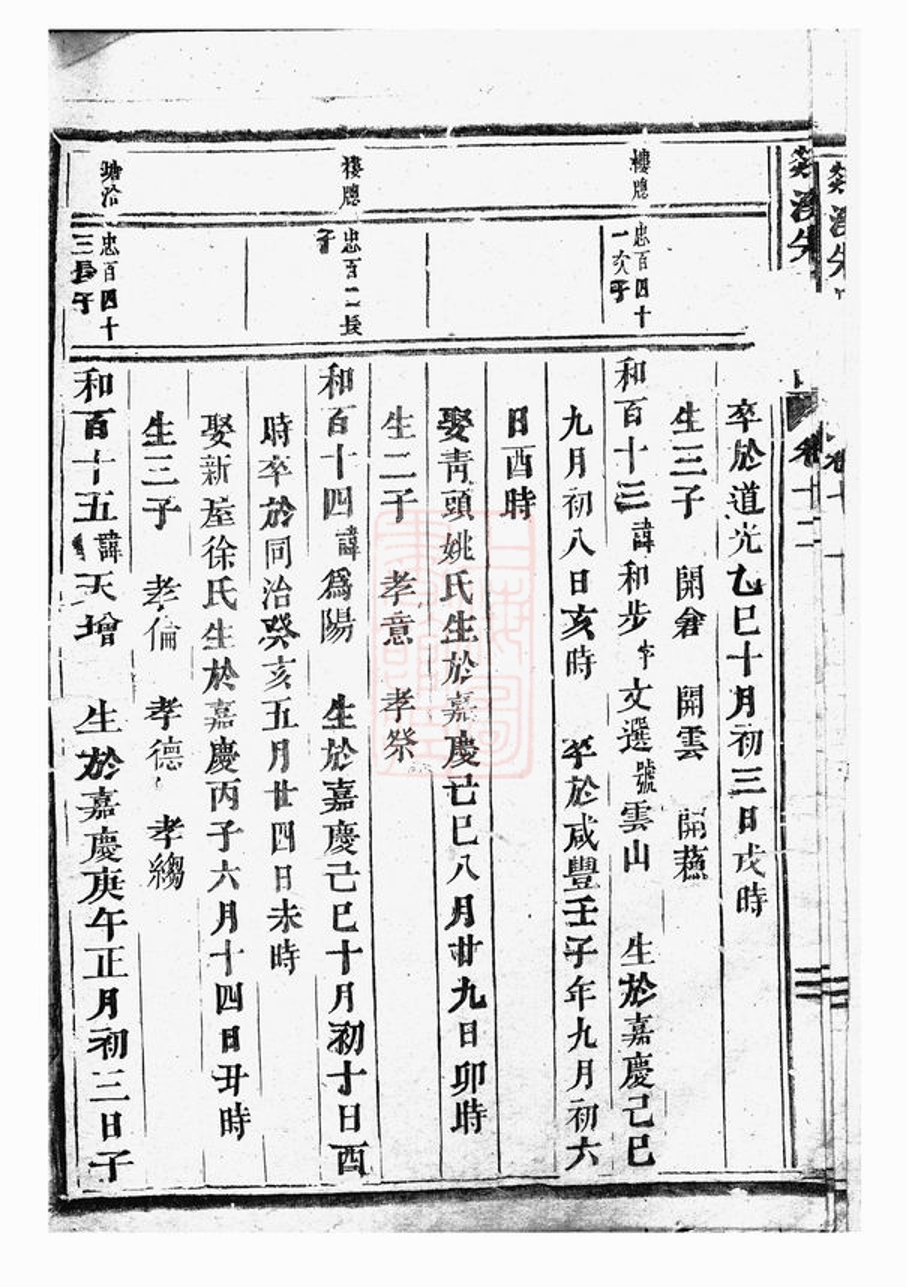 卷十二
卒於道光乙巳十月初三日戌時
生三子 開倉 開雲 開蕪
樓牕
忠百四十一次子
和百十三諱和步字文選號雲山 生於嘉慶己巳
九月初八日亥時 卒於咸豐壬子年九月初六
日酉時
娶青頭姚氏生於嘉慶己巳八月廿九日卯時
生二子 孝意 孝祭
樓牕
忠百二長子
和百十四諱為陽 生於嘉慶己巳十月初十日酉
時卒於同治癸亥五月廿四日未時
娶新屋徐氏生於嘉慶丙子六月十四日丑時
生三子 孝倫 孝德 孝縐
塘洽
忠百四十三長子
和百十五諱天增 生於嘉慶庚午正月初三日子